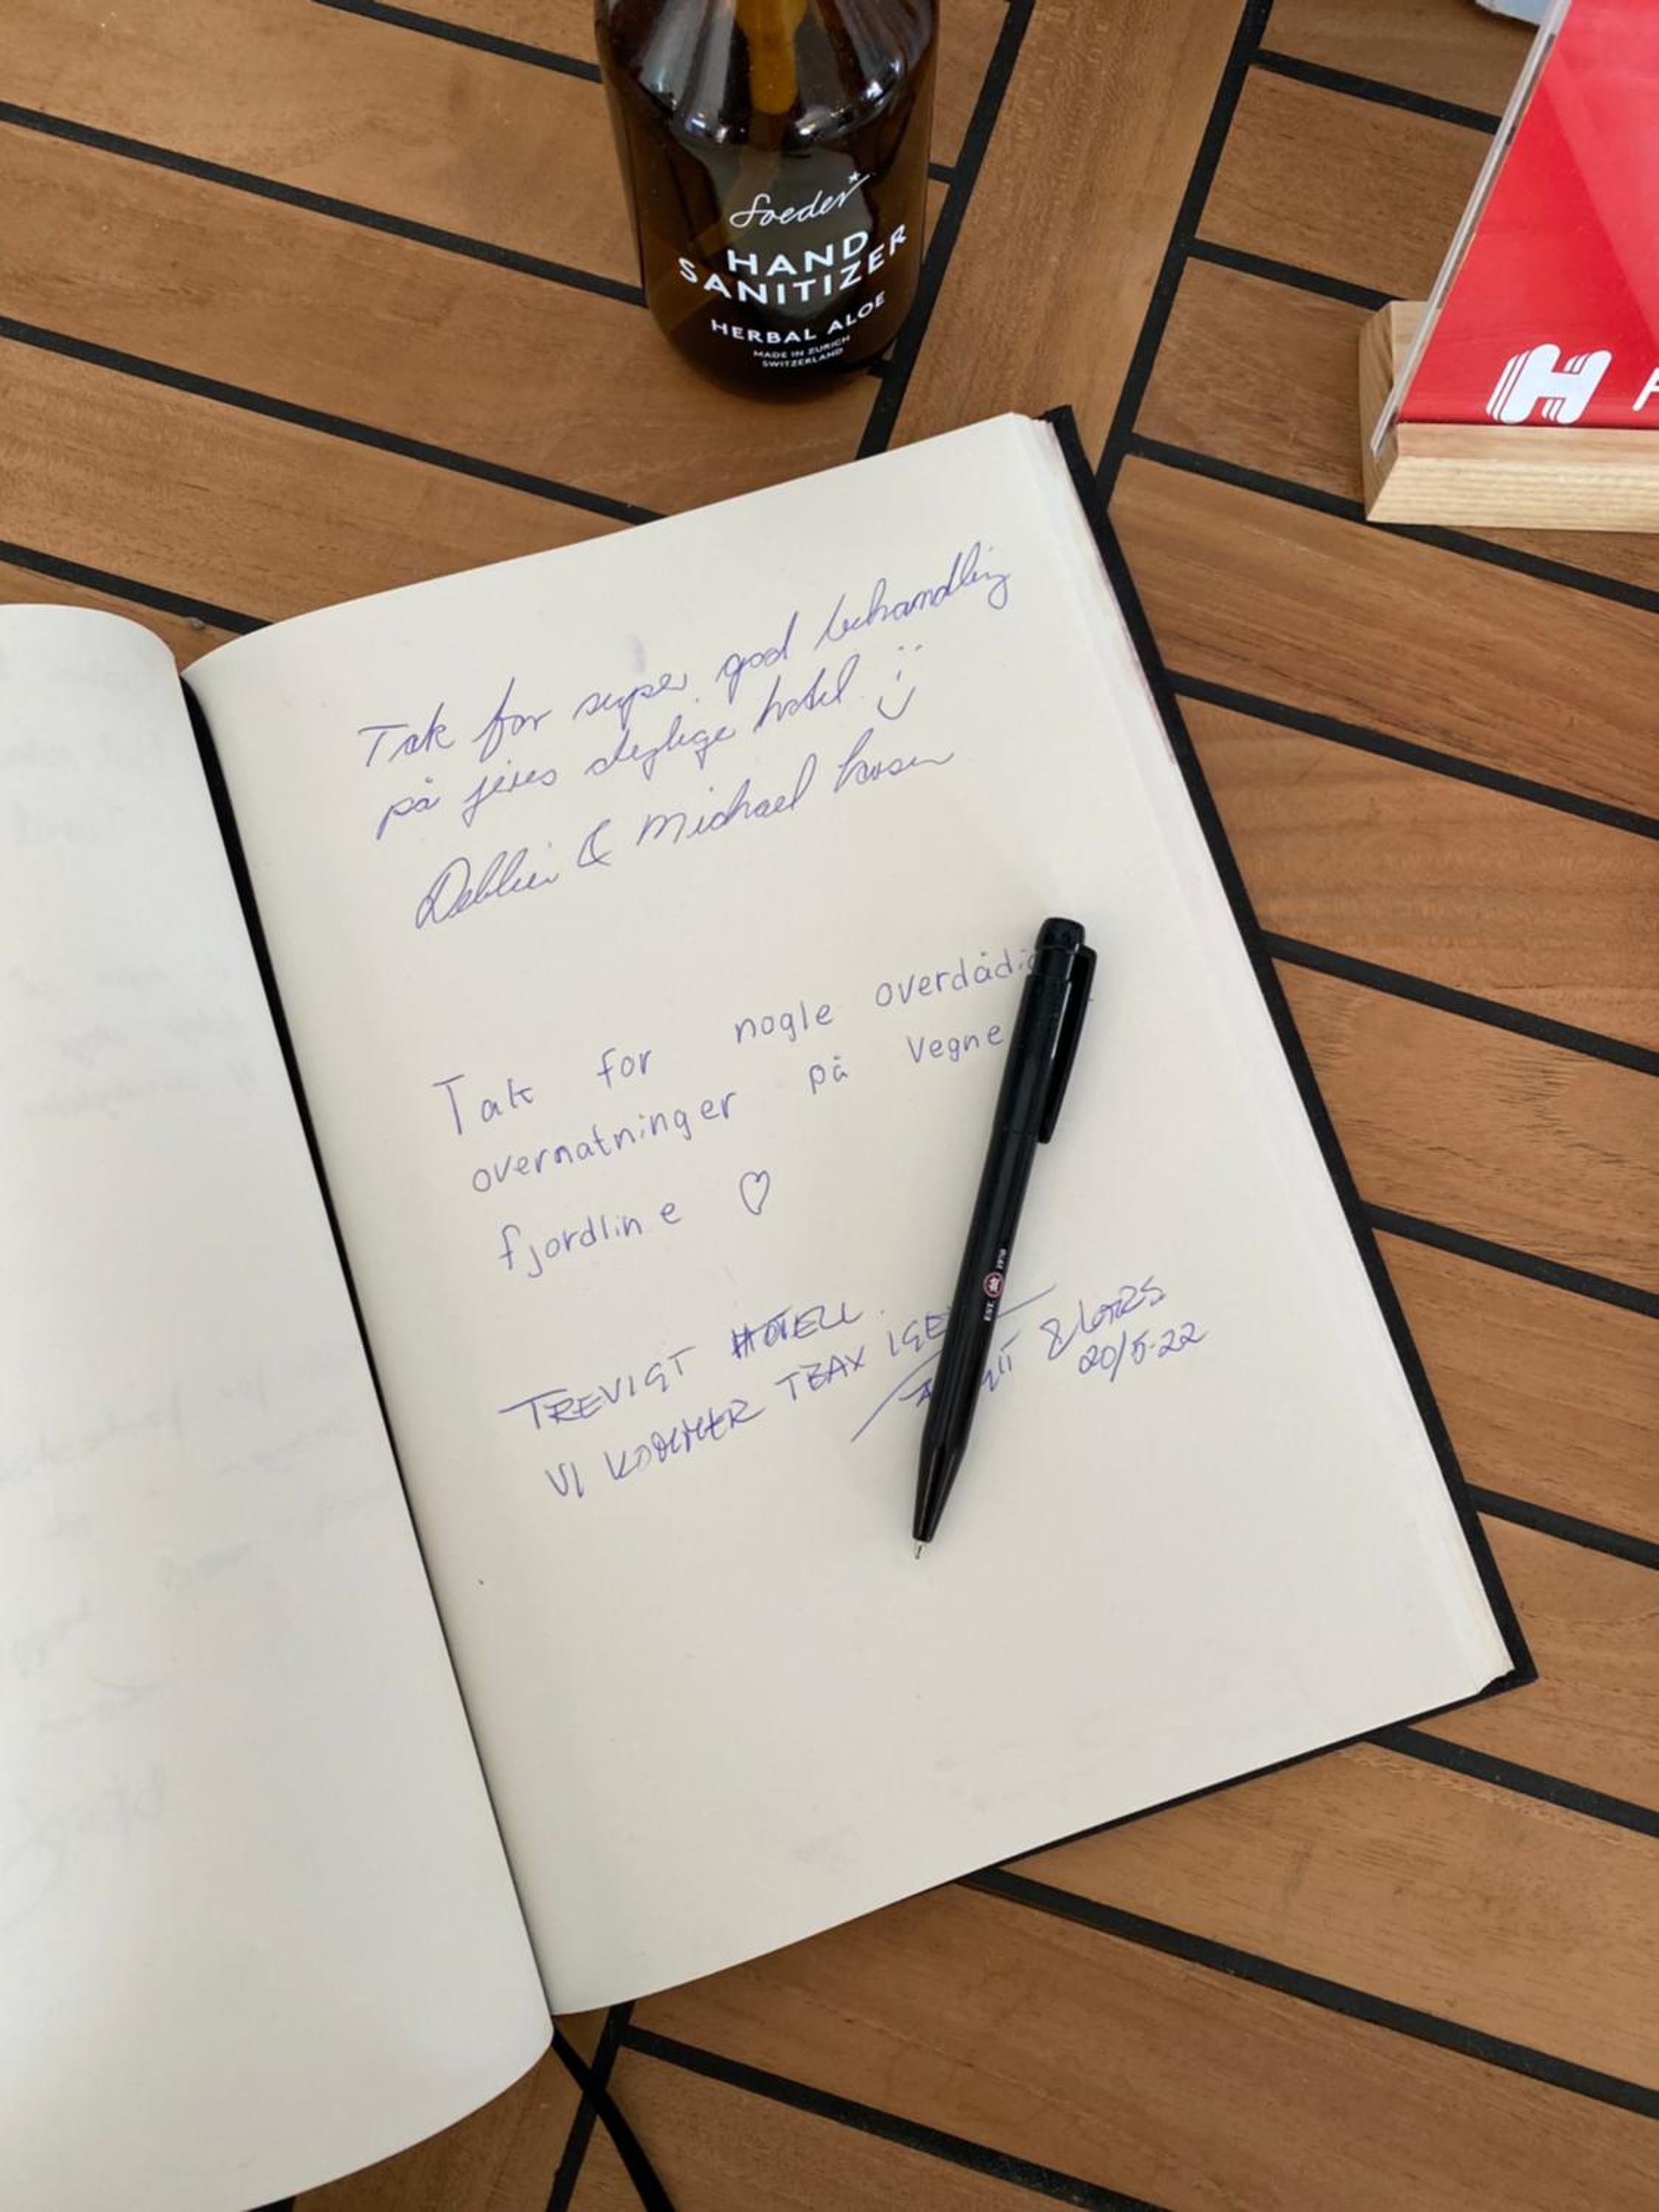 Soeder*
HAND
SANITIZER
HERBAL ALOE
MADE IN ZURICH
SWITZERLAND
H
Tak for super god behandling
på jeres dejlige hotel
Debbie & Michael
Tak for nogle overdådi
overnatninger på vegne
fjordline ♡
TREVIGT HOTELL.
VI KOMMER TBAX IGE
& LARS
20/5-22
EST. 1970